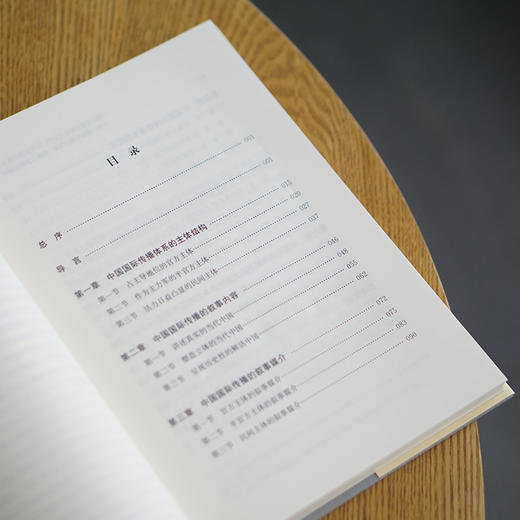 目 录
总 序 001
导 言 001
第一章 中国国际传播体系的主体结构 015
第一节 占主导地位的官方主体 020
第二节 作为主力军的半官方主体 027
第三节 活力日益凸显的民间主体 037
第二章 中国国际传播的叙事内容 046
第一节 讲述真实的当代中国 048
第二节 塑造立体的当代中国 055
第三节 呈现历史性的鲜活中国 062
第三章 中国国际传播的叙事媒介 072
第一节 官方主体的叙事媒介 075
第二节 半官方主体的叙事媒介 083
第三节 民间主体的叙事媒介 090